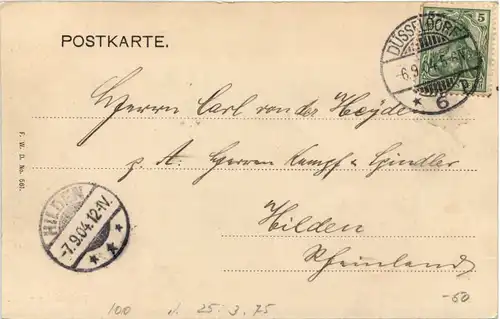 POSTKARTE.
5
DÜSSELDORF
-6.9.
* 6
Herrn Carl von der Heyden
p. A. Herren Kampf & Spindler
Hilden
Rheinland
F. W. D. No. 561.
HILDEN
-7.9.04.12-IV.
* * *
100 d. 25.3.75
-60